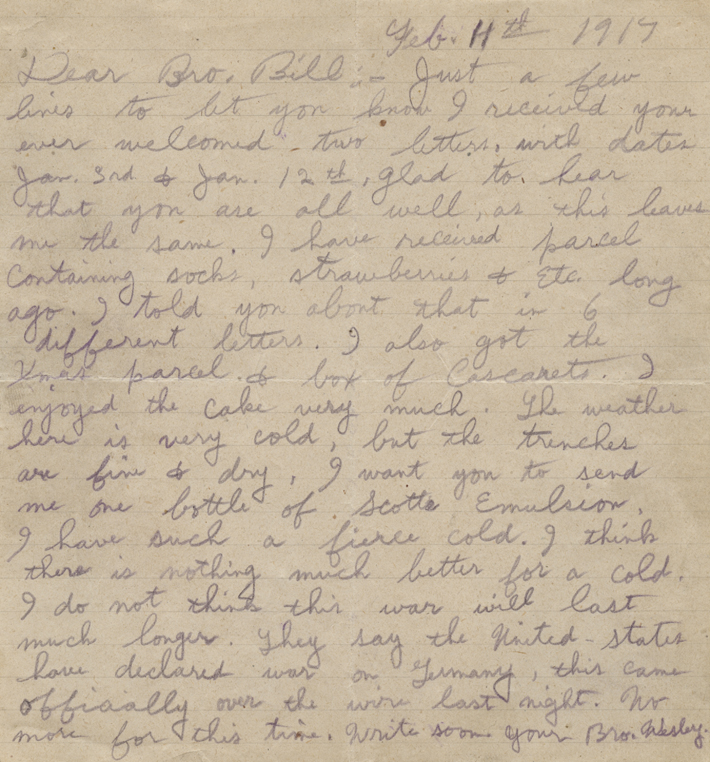 Feb. 11th 1917
Dear Bro. Bill:- Just a few
lines to let you know I received your
ever welcomed two letters, with dates
Jan. 3rd & Jan. 12th, glad to hear
that you are all well, as this leaves
me the same. I have received parcel
containing socks, strawberries & Etc. long
ago. I told you about that in 6
different letters. I also got the
Xmas parcel & box of Cascarets. I
enjoyed the cake very much. The weather
here is very cold, but the trenches
are fine & dry, I want you to send
me one bottle of Scotts Emulsion,
I have such a fierce cold. I think
there is nothing much better for a cold.
I do not think this war will last
much longer. They say the United-States
have declared war on Germany, this came
offiaally over the wire last night. No
more for this time. Write soon. Your Bro. Wesley.